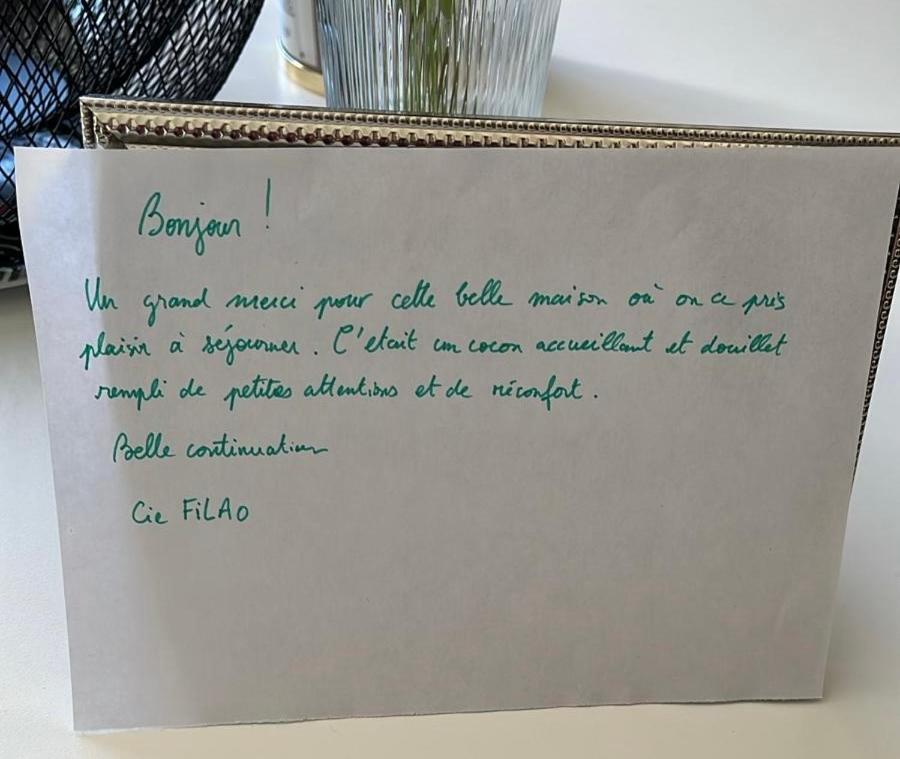 Bonjour !
Un grand merci pour cette belle maison où on a pris
plaisir à séjourner. C'était un cocon accueillant et douillet
rempli de petites attentions et de réconfort.
Belle continuation
Cie FiLAO